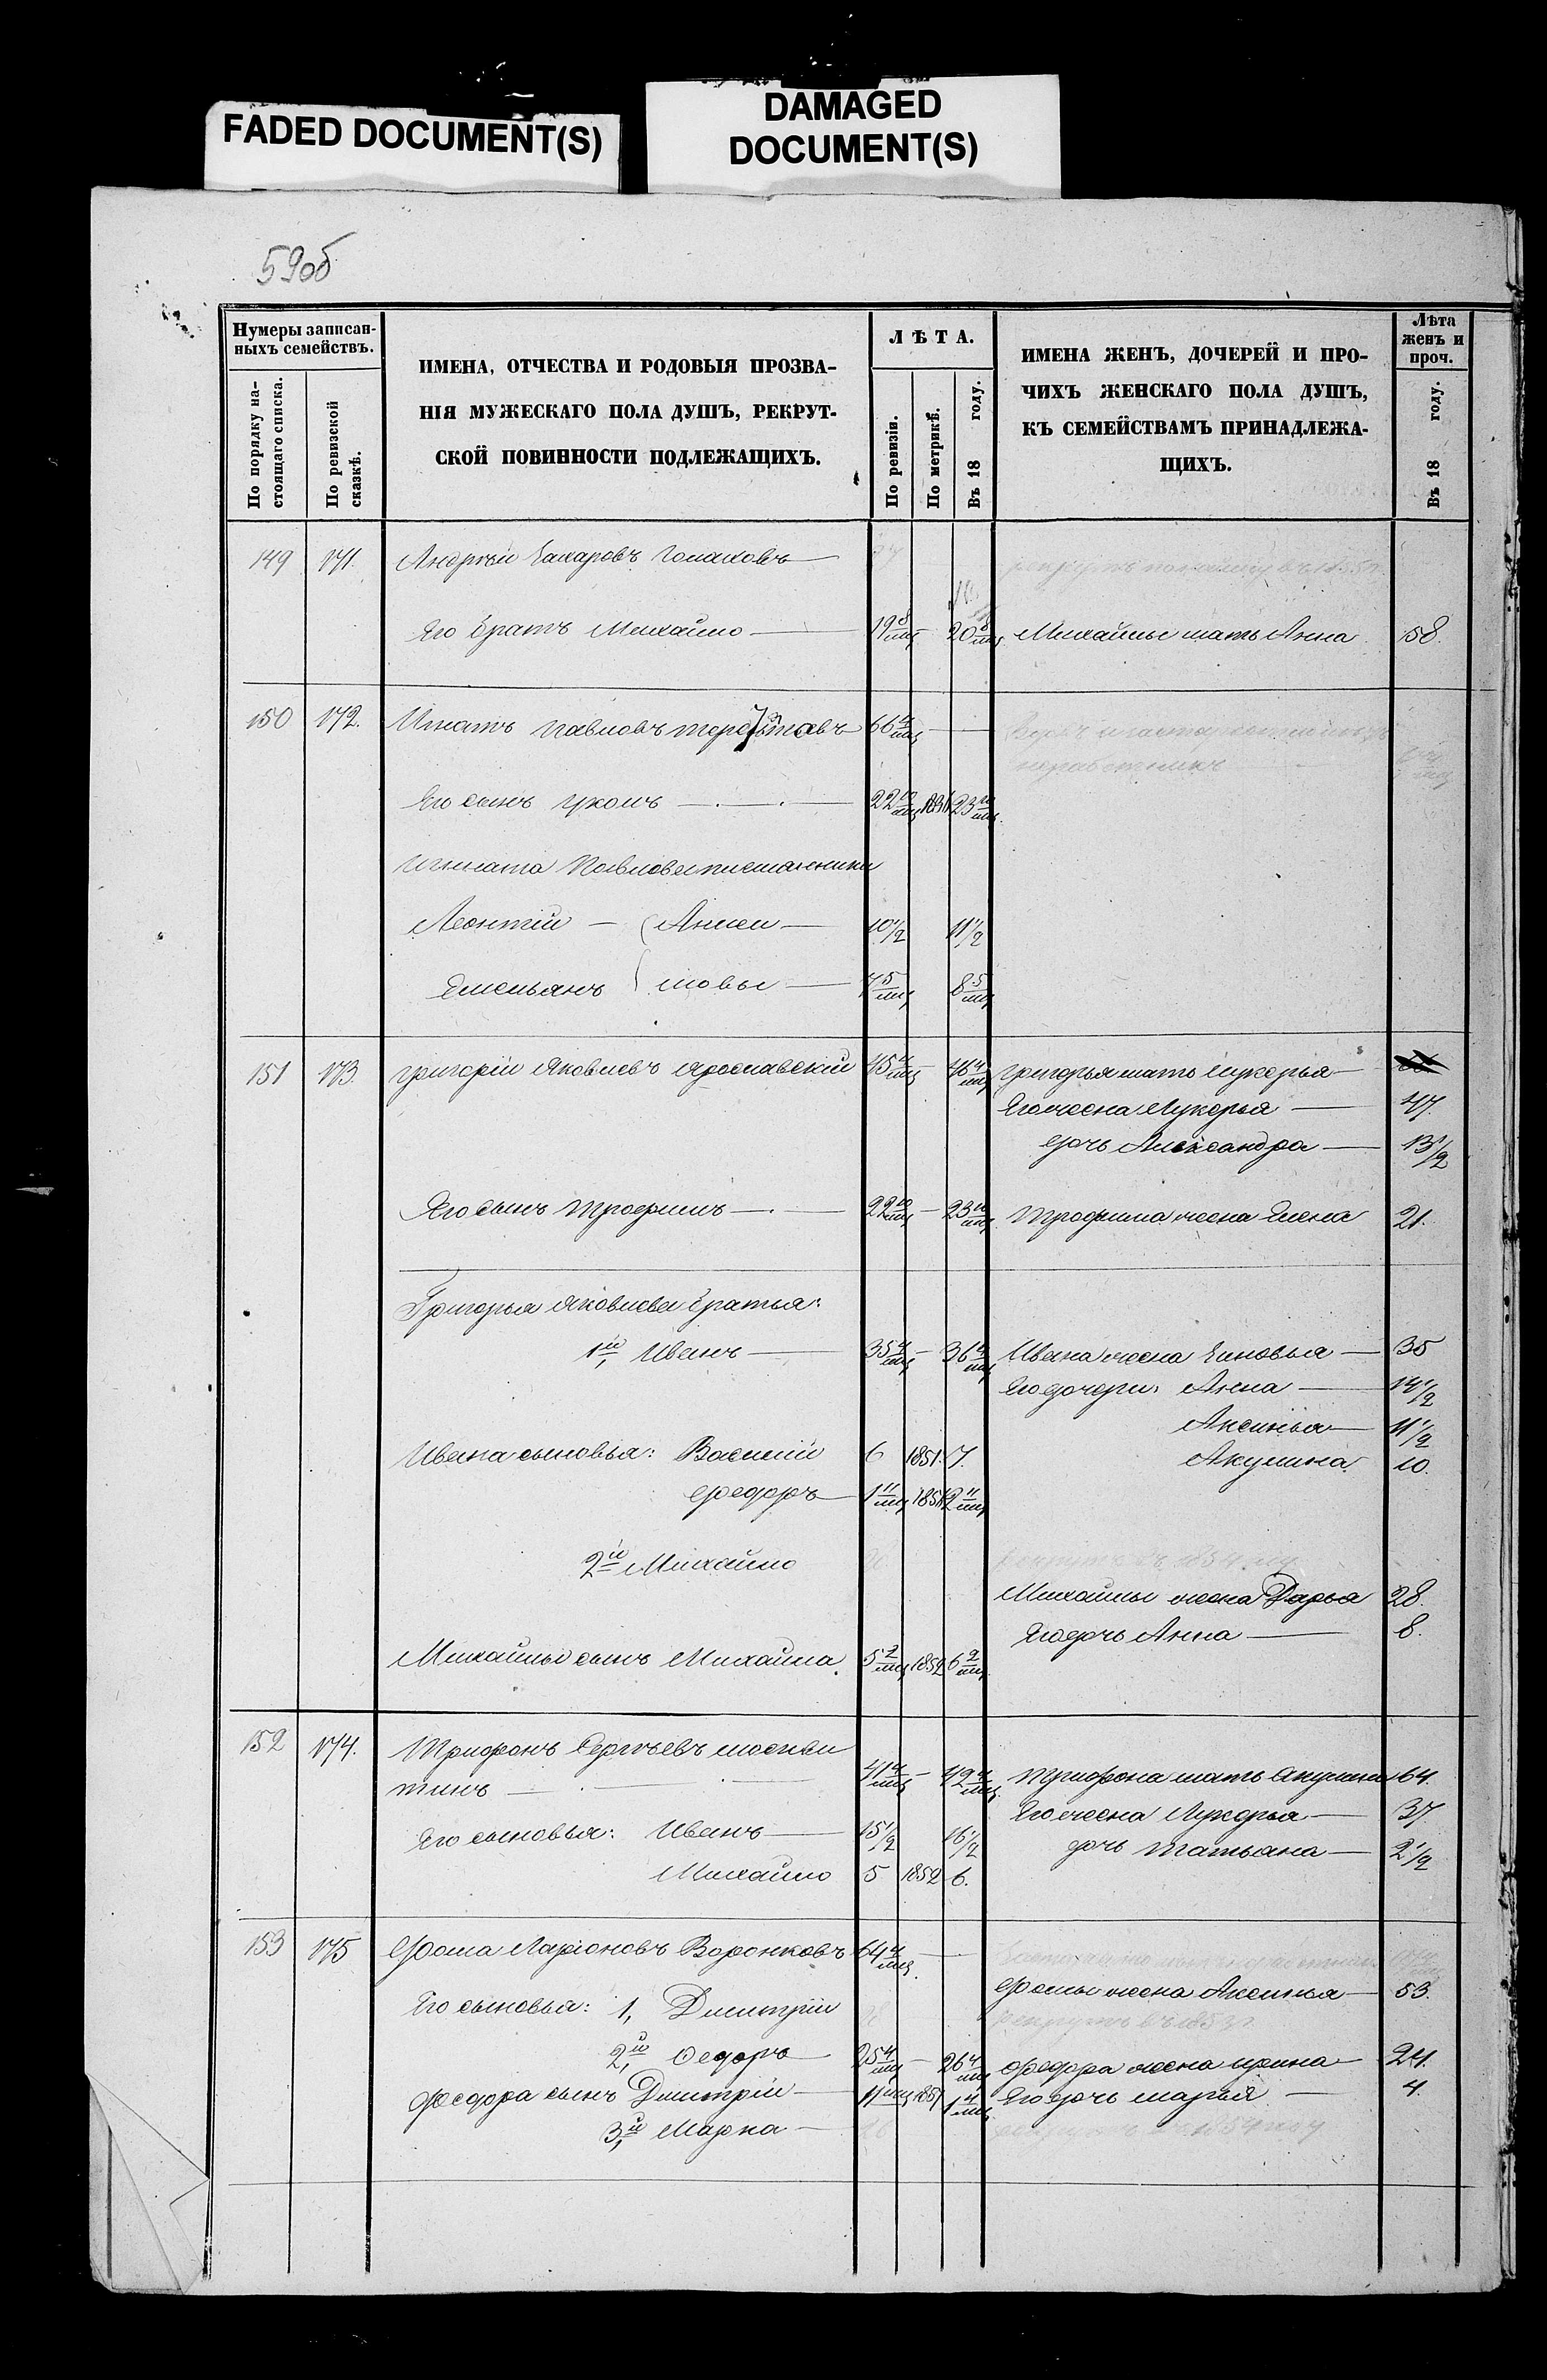 FADED DOCUMENT(S)
DAMAGED
DOCUMENT(S)
59об
Нумеры записан-
ныхъ семействъ.
По порядку на-
стоящаго списка.
По ревизской
сказкѣ.
ИМЕНА, ОТЧЕСТВА И РОДОВЫЯ ПРОЗВА-
НІЯ МУЖЕСКАГО ПОЛА ДУШЪ, РЕКРУТ-
СКОЙ ПОВИННОСТИ ПОДЛЕЖАЩИХЪ.
ЛѢТА.
По ревизіи.
По метрикѣ.
Въ 18 году.
ИМЕНА ЖЕНЪ, ДОЧЕРЕЙ И ПРО-
ЧИХЪ ЖЕНСКАГО ПОЛА ДУШЪ,
КЪ СЕМЕЙСТВАМЪ ПРИНАДЛЕЖА-
ЩИХЪ.
Лѣта
женъ и
проч.
Въ 18 году.
149 171. Андрѣй Захаровъ
Его братъ Михайло 19 8/мц 20 8/мц Михайлы мать Анна 58.
150 172. Игнатъ Павловъ 66 4/мц
Его сынъ 22 10/мц 23 10/мц
Игната Павлова племянники
Леонтій Аники 10 1/2 11 1/2
Емельянъ новы 7 5/мц 8 5/мц
151 173. Григорій Яковлевъ Ярославскій 45 4/мц 46 4/мц Григорья мать Лукерья
Его жена Лукерья 47.
дочь Александра 13 1/2
Его сынъ Трофимъ 22 10/мц 23 10/мц Трофима жена Елена 21.
Григорья Яковлева братья:
1й, Иванъ 35 4/мц 36 4/мц Ивана жена Зиновья 35
Его дочери: Анна 14 1/2
Аксинья 11 1/2
Ивана сыновья: Василій 6 1851. 7. Акулина 10.
Федоръ 1 11/мц 2 11/мц
2й Михайло
Михайлы жена Дарья 28.
Его дочь Анна 8.
Михайлы сынъ Михайла 5 2/мц 1852 6 2/мц
152 174. Трифонъ Сергѣевъ москви
тинъ 41 4/мц 42 4/мц Трифона мать Акулина 64.
Его жена Лукерья 37.
Его сыновья: Иванъ 15 1/2 16 1/2 дочь Татьяна 2 1/2
Михайло 5 1852 6.
153 175 Фома Ларіоновъ Воронковъ 64 4/мц
Фомы жена Аксинья 53.
Его сыновья: 1, Дмитрій
2,й Федоръ 25 4/мц 26 4/мц Федора жена Ирина 24.
Федора сынъ Дмитрій 11 мц 1857 Его дочь Марья 4.
3,й Марка